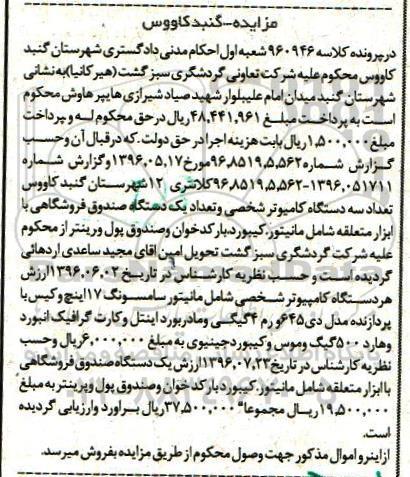 مزایده-گنبدکاووس
درپرونده کلاسه ۹۶۰۹۴۶ شعبه اول احکام مدنی دادگستری شهرستان گنبد
کاووس محکوم علیه شرکت تعاونی گردشگری سبز گشت (هیرکانیا)به نشانی
شهرستان گنبد میدان امام علی بلوار شهید صیاد شیرازی هایپر هاوش محکوم
است به پرداخت مبلغ ۴۸,۴۴۱,۹۶۱ ریال در حق محکوم له و پرداخت
مبلغ ۱,۵۰۰,۰۰۰ ریال بابت هزینه اجرا در حق دولت، که در قبال آن و حسب
گزارش شماره ۹۶,۸۵۱۹,۵,۵۶۲ مورخ ۱۳۹۶,۰۵,۱۷ و گزارش شماره
۱۳۹۶,۰۵۱۷۱۱-۹۶,۸۵۱۹,۵,۵۶۲ کلانتری ۱۲ شهرستان گنبد کاووس
تعداد سه دستگاه کامپوتر شخصی و تعداد یک دستگاه صندوق فروشگاهی با
ابزار متعلقه شامل مانیتور.کیبورد.بارکدخوان وصندوق پول و پرینتر از محکوم
علیه شرکت گردشگری سبز گشت تحویل امین آقای مجید ساعدی اردهائی
گردیده است و حسب نظریه کارشناس در تاریخ ۱۳۹۶,۰۶,۰۲ ارزش
هر دستگاه کامپیوتر شخصی شامل مانیتور سامسونگ ۱۷ اینچ و کیس با
پردازنده مدل دی ۶۴۵ و رم ۴ گیگی و مادربورد اینتل و کارت گرافیک انبورد
وهارد ۵۰۰ گیگ وموس و کیبورد جینیوی به مبلغ ۶,۰۰۰,۰۰۰ ریال و حسب
نظریه کارشناس در تاریخ ۱۳۹۶,۰۷,۲۳ ارزش یک دستگاه صندوق فروشگاهی
با ابزار متعلقه شامل مانیتور.کیبورد.بارکدخوان وصندوق پول و پرینتر به مبلغ
۱۹,۵۰۰,۰۰۰ ریال مجموعا" ۳۷,۵۰۰,۰۰۰ ریال براورد وارزیابی گردیده
است.
از اینرو اموال مذکور جهت وصول محکوم از طریق مزایده بفروش میرسد.